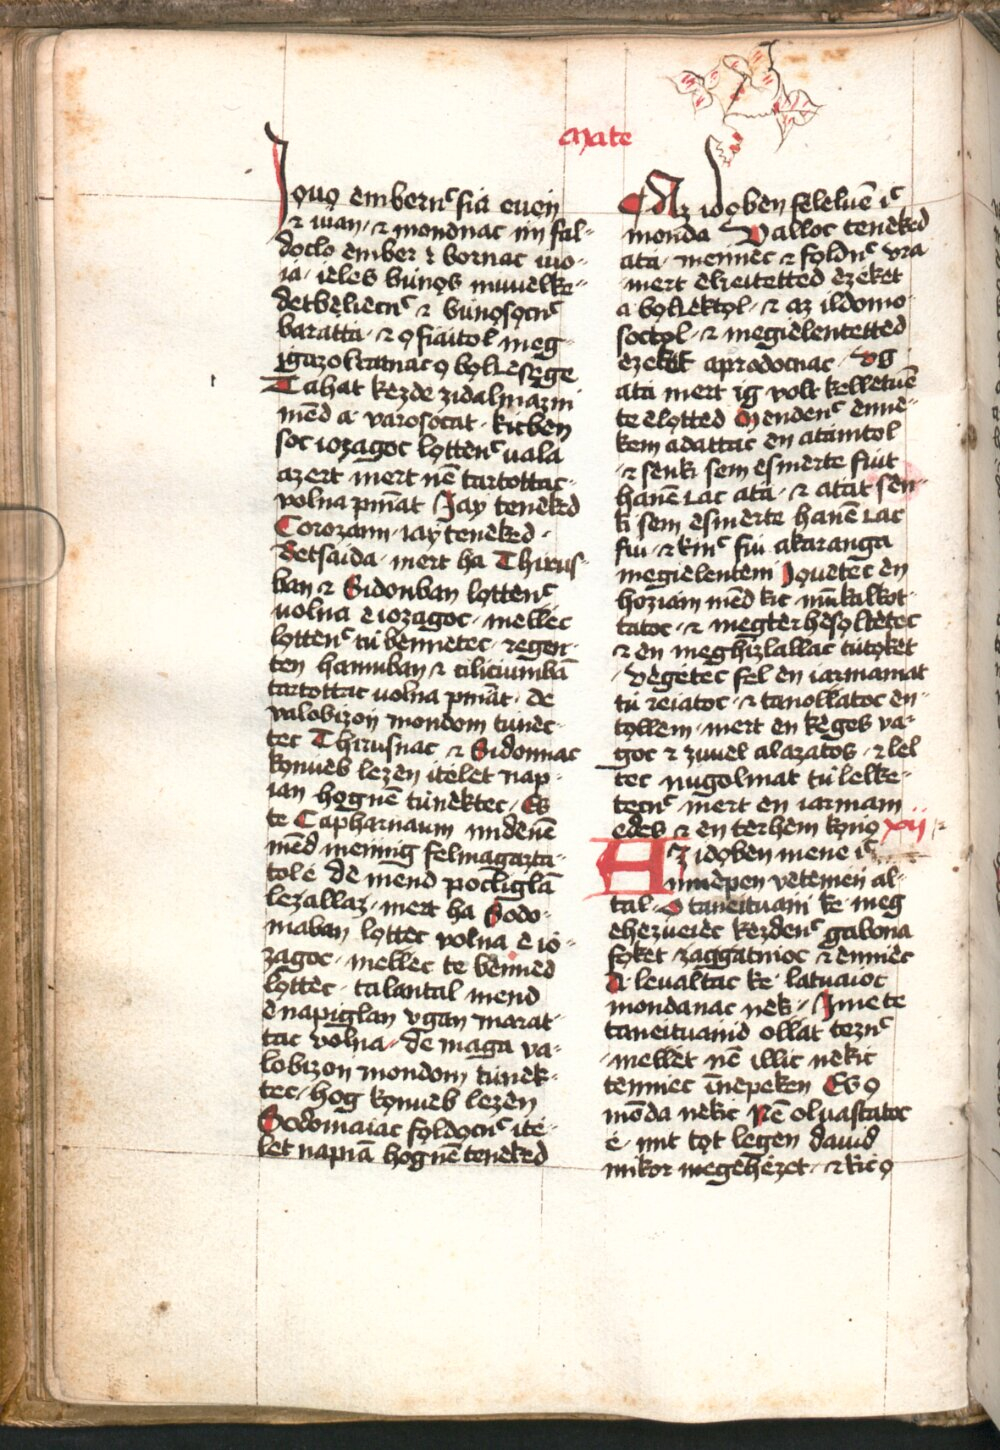 Mate
Jọuọ embernc̄ fia euen
⁊ iuan · ⁊ mondnac im fal-
doclo ember ⁊ bornac iuo-
ia · ieles bu̇nọs miuelke-
detbeliecnc̄ ⁊ bu̇nọsọcnc̄
baratta · ⁊ ọ fiaitol meg-
igazoltatnac ọ bọlċesege
Tahat kezde zidalmazni
mēd a · varosocat · kicben
soc iozagoc lọttenc̄ uala
azert mert nē tartottac
volna pīnat Jay teneked
Corozaim · iay teneked ·
Betsaida · mert ha Thirus-
ban ⁊ Sidonban lọttenc̄
uolna e iozagoc · mellec
lọttenc̄ tu̇ bennetec · regen-
ten hamuban ⁊ ciliciumbā
tartottac uolna pīnat · de
valobizon mondom tu̇nec-
tec Thirusnac ⁊ Sidonnac
kọnueb lezen itelet nap-
ian hognē tu̇nektec · Es
te Capharnaum midenē
mēd mennig felmagazta-
tol e de mend pocliglā
lezallaz · mert ha Sodo-
maban lọttec volna e io-
zagoc · mellec te benned
lọttec · talantal mend
e napiglan vgan marat-
tac volna · de maga va-
lobizon mondom tu̇nek-
tec · hog kọnueb lezen
Sodomaiac fọldọcnc̄ ite-
let napiā hognē teneked
Az idọben feleluē ic̄
monda Valloc teneked
ata · mennec ⁊ fọldnc̄ vra
mert elreitetted ezeket
a bọlċektọl · ⁊ az ildomo-
soctọl · ⁊ megielentetted
ezeket aprodocnac · vg
ata mert ig volt kelletuē
te elọtted Mendenc̄ enne-
kem adattac en atamtol
⁊ senki sem esmerte fiut
hanē čac ata · ⁊ atat sen-
ki sem esmerte hanē čac
fiu · ⁊ kinc̄ fiu akarangа
megielenteni Jọuetec en
hoziam mēd kic mūkalkot-
tatoc · ⁊ megterhesọltetec
⁊ en meghizlallac tu̇tọket
Vegetec fel en iarmamat
tu̇ reiatoc · ⁊ tanollatoc en-
tọllem · mert en keges va-
goc ⁊ zu̇uel alazatos · ⁊ lel-
tec nugolmat tu̇ lelke-
tecnc̄ mert en iarmam
edes ⁊ en terhem kọnọ xii
Az idọben mene ic̄
innepen vetemeń al-
tal · ọ taneituani ke · meg
ehezueiec kezdenc̄ gabona
fọket zaggatnioc ⁊ enniec
A · leualtac ke · latuaioc
mondanac nek · Jme te
taneituanid ollat teznc̄
mellet nē illic nekic
tenniec īnepeken Es ọ
mōda nekic Nē oluastatoc
e · mit tọt legen dauid
mikor megehezet · ⁊ kic ọ